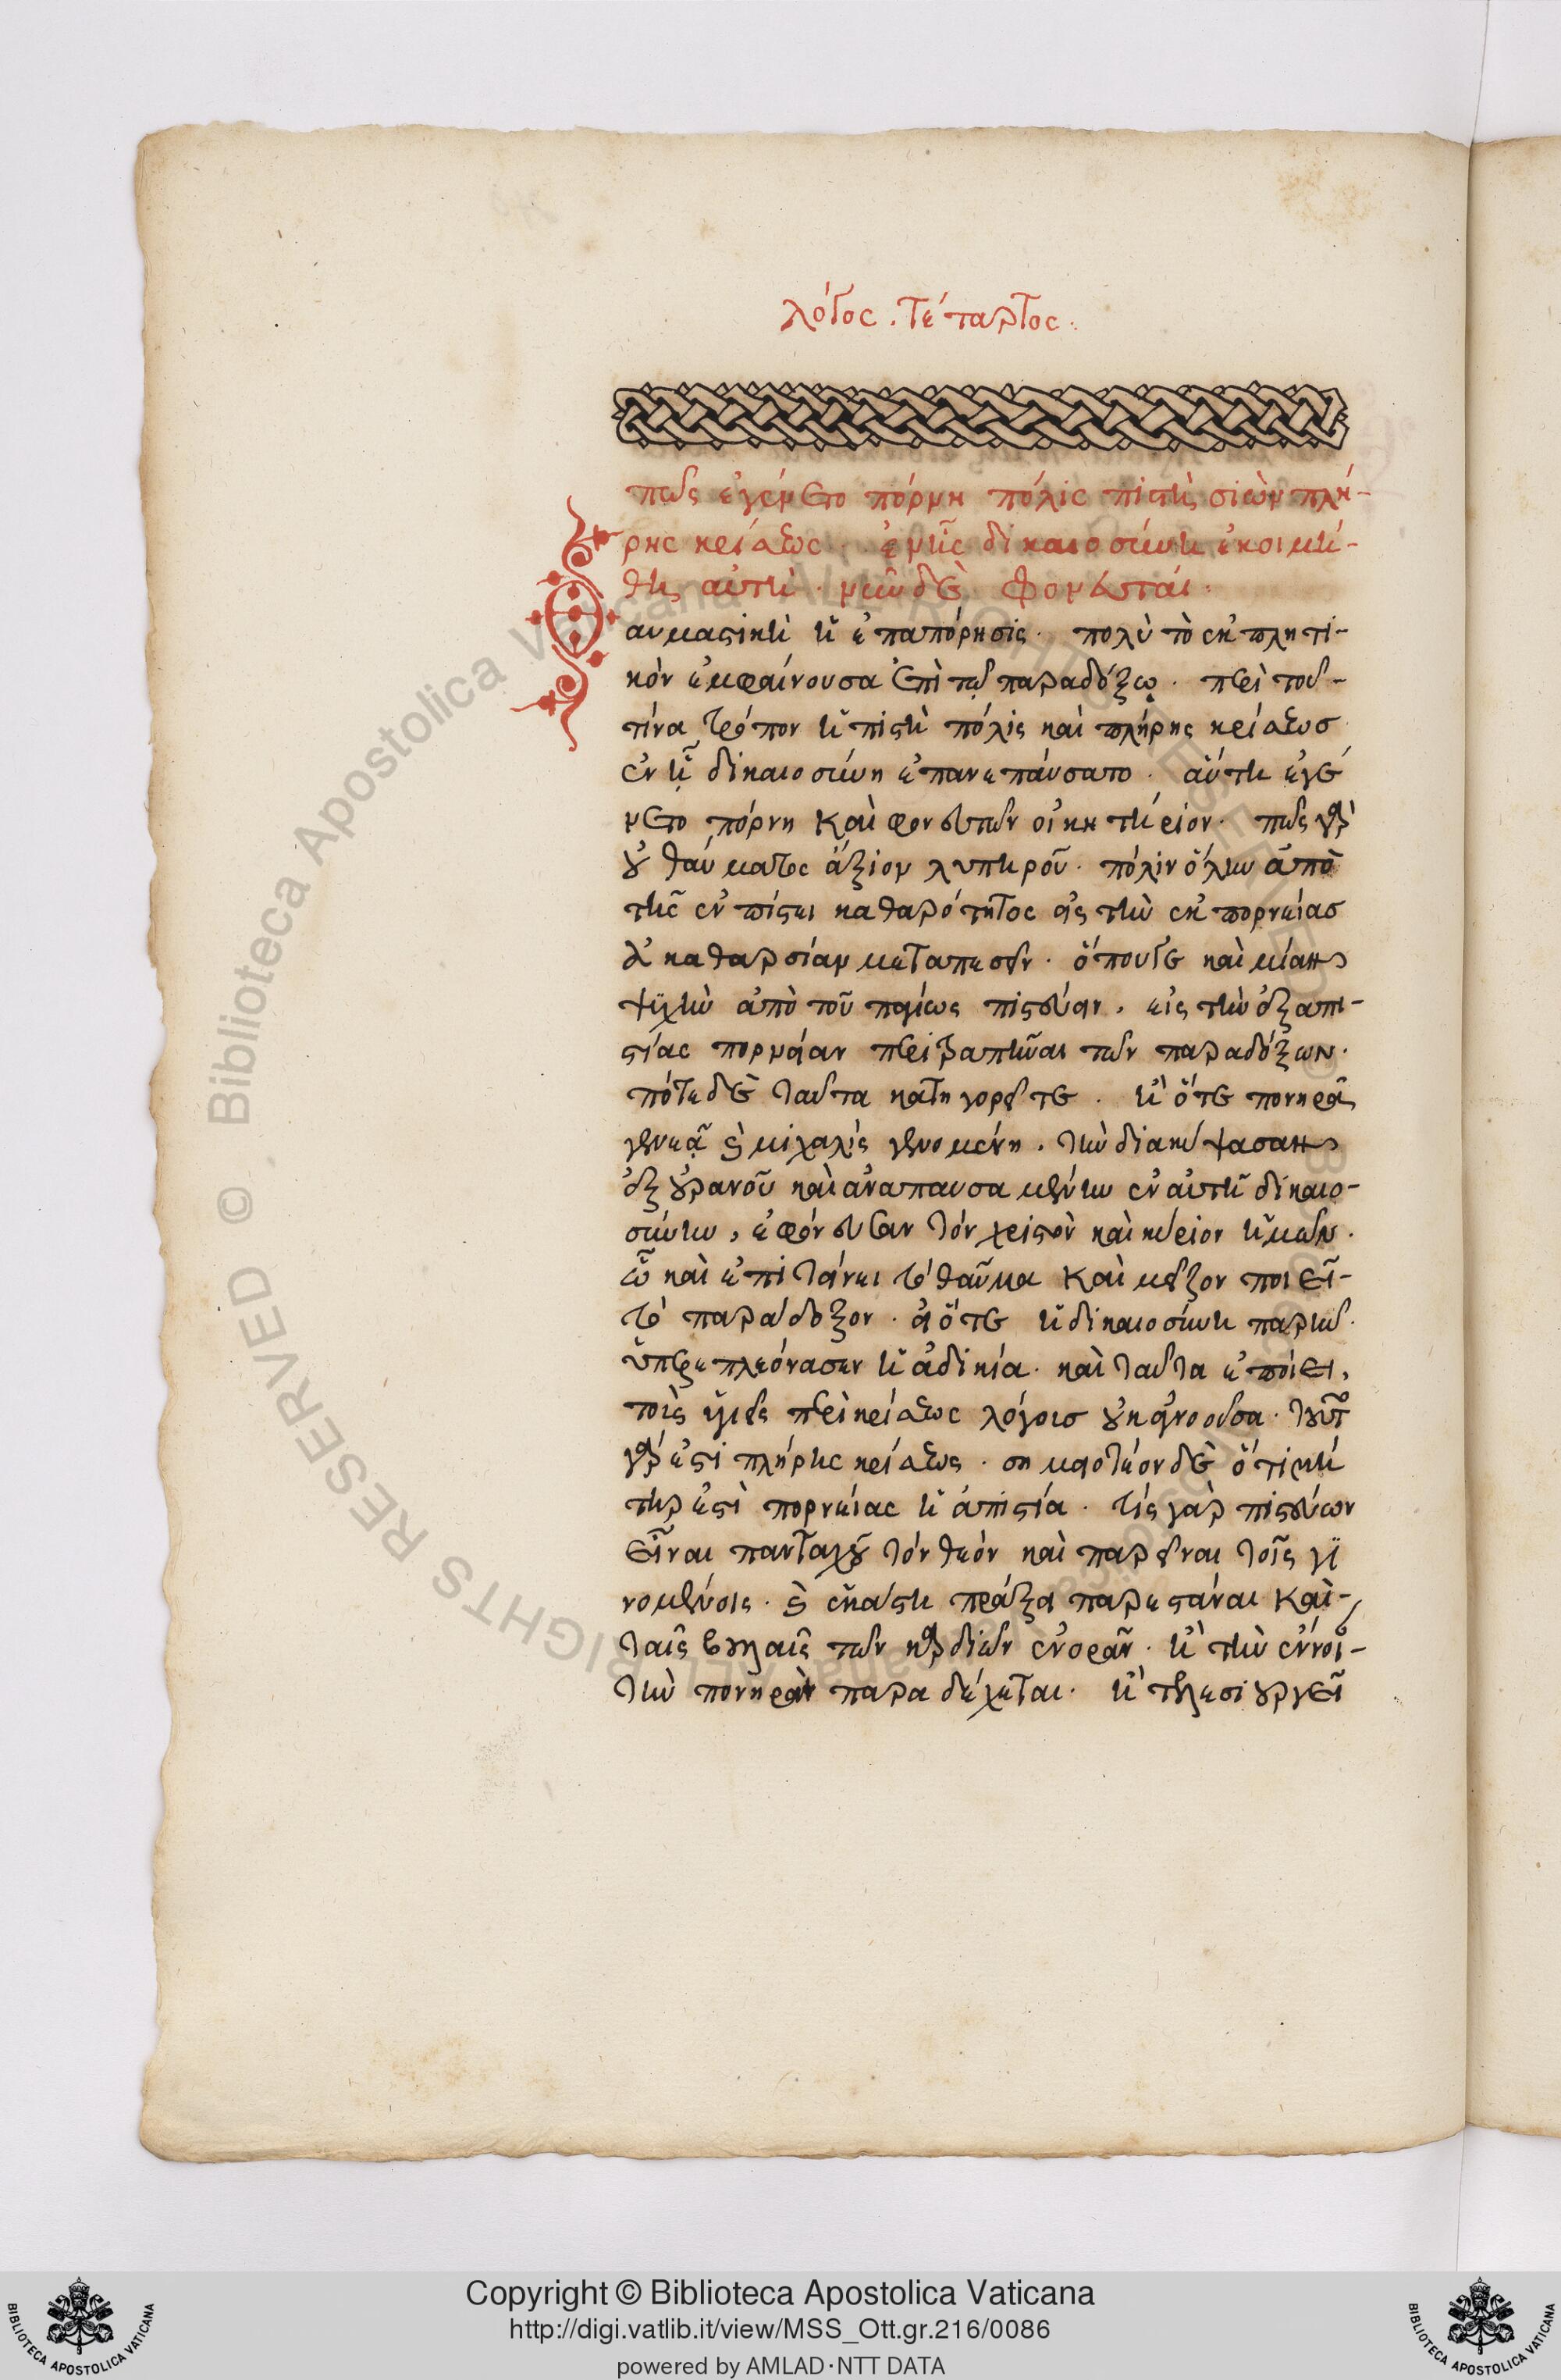 λόγος. τέταρτος.
πῶς ἐγένετο πόρνη πόλις πιστὴ σιὼν πλή-
ρης κρίσεως. ἐν ᾗ δικαιοσύνη ἐκοιμή-
θη ἐν αὐτῇ. νῦν δὲ φονευταί.
Θαυμαστικὴ ἡ ἐπαπόρησις. πολὺ τὸ ἐκπληκτι-
κὸν ἐμφαίνουσα ἐπὶ τῷ παραδόξῳ. περὶ τοῦ-
τίνα τρόπον ἡ πιστὴ πόλις καὶ πλήρης κρίσεως
ἐν ᾗ δικαιοσύνη ἐπανεπαύσατο. αὕτη ἐγέ
νετο πόρνη καὶ φονευτῶν οἰκητήριον. πῶς γὰρ
οὐ θαύματος ἄξιον λυπηροῦ. πόλιν ὅλην ἀπὸ
τῆς ἐν πίστει καθαρότητος εἰς τὴν ἐκ πορνείας
ἀκαθαρσίαν μεταπεσεῖν. ὅπουγε καὶ μίαν
ψυχὴν ἀπὸ τοῦ παγίως πιστεύειν, εἰς τὴν ἐξ ἀπι-
στίας πορνείαν περιτραπῆναι τῶν παραδόξων.
πότε δὲ ταῦτα κατηγορεῖτε. ἢ ὅτε πονηρὰ
γενεὰ καὶ μιχαλὶς γενομένη. τὴν διακύψασαν
ἐξ οὐρανοῦ καὶ ἀναπαυσαμένην ἐν αὐτῇ δικαιο-
σύνην, ἐφόνευσαν τὸν χριστὸν καὶ κύριον ἡμῶν.
ὃ καὶ ἐπιτείνει τὸ θαῦμα καὶ μεῖζον ποιεῖ-
τὸ παράδοξον. εἰ ὅτε ἡ δικαιοσύνη παρῆν.
ὑπερεπλεόνασεν ἡ ἀδικία. καὶ ταῦτα ἐποίει,
τοὺς περὶ κρίσεως λόγους οὐκ ἀγνοοῦσα. τοῦτο
γάρ ἐστι πλήρης κρίσεως. σημειωτέον δὲ ὅτι μή
τηρ ἐστὶ πορνείας ἡ ἀπιστία. τίς γὰρ πιστεύων
εἶναι πανταχοῦ τὸν θεὸν καὶ παρεῖναι τοῖς γι
νομένοις. καὶ ἑκάστῃ πράξει παρεστάναι καὶ-
ταῖς βουλαῖς τῶν καρδιῶν ἐνορᾶν. ἢ τὴν ἔννοι-
τὴν πονηρὰν παραδέχεται. ἢ τελεσιουργεῖ
Copyright © Biblioteca Apostolica Vaticana
http://digi.vatlib.it/view/MSS_Ott.gr.216/0086
powered by AMLAD·NTT DATA